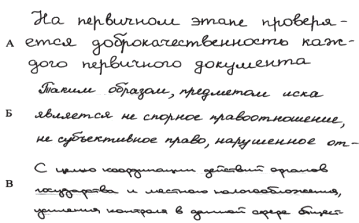 На первичном этапе проверя-
А ется доброкачественность каж-
дого первичного документа
Таким образом, предметом иска
Б является не спорное правоотношение,
не субъективное право, нарушенное от-
С целью координации действий органов
В государства и местного налогообложения,
усиления контроля в данной сфере общест-